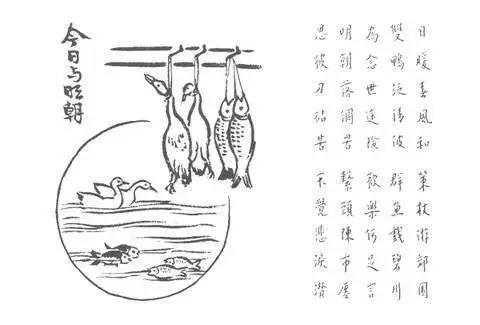 今日与明朝
日暖春風和 策杖游郊園
雙鴨泛清波 群魚戲碧川
為念世途險 歡樂何足言
明朝落網罟 繫頭陳市廛
思彼刀砧苦 不覺悲淚潸